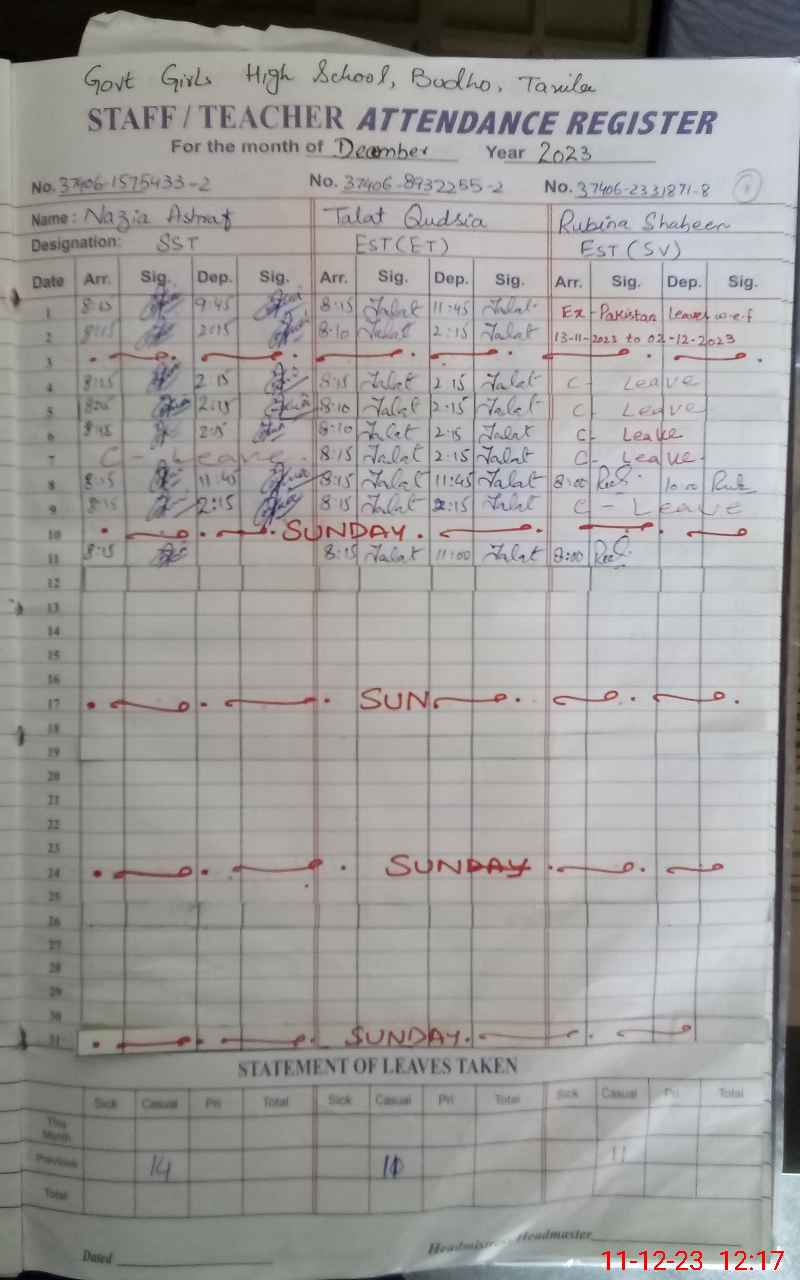 Govt Girls High School, Budho, Taxila
STAFF / TEACHER ATTENDANCE REGISTER
For the month of December Year 2023
No. 37406-1575433-2 No. 37406-8932255-2 No. 37406-2331871-8
Name: Nazia Ashraf Talat Qudsia Rubina Shaheen
Designation: SST EST(ET) EST(SV)
Date Arr. Sig. Dep. Sig. Arr. Sig. Dep. Sig. Arr. Sig. Dep. Sig.
1 8:15 9:45 8:15 Talat 11:45 Talat Ex-Pakistan Leave w.e.f
2 8:15 2:15 8:10 Talat 2:15 Talat 13-11-2023 to 02-12-2023
3
4 8:15 2:15 8:15 Talat 2:15 Talat C- Leave
5 2:15 8:10 Talat 2:15 Talat C- Leave
6 8:15 2:15 8:10 Talat 2:15 Talat C- Leave
7 C- Leave. 8:15 Talat 2:15 Talat C- Leave.
8 8:15 11:45 8:15 Talat 11:45 Talat 8:00 10:00
9 8:15 2:15 8:15 Talat 2:15 Talat C - Leave
10 SUNDAY.
11 8:15 8:15 Talat 11:00 Talat 8:00
12
13
14
15
16
17 SUN
18
19
20
21
22
23
24 SUNDAY
25
26
27
28
29
30
31 SUNDAY.
STATEMENT OF LEAVES TAKEN
Sick Casual Pri Total Sick Casual Pri Total Sick Casual Pri Total
This Month
Previous 14 11
Total
Dated Headmaster
11-12-23 12:17